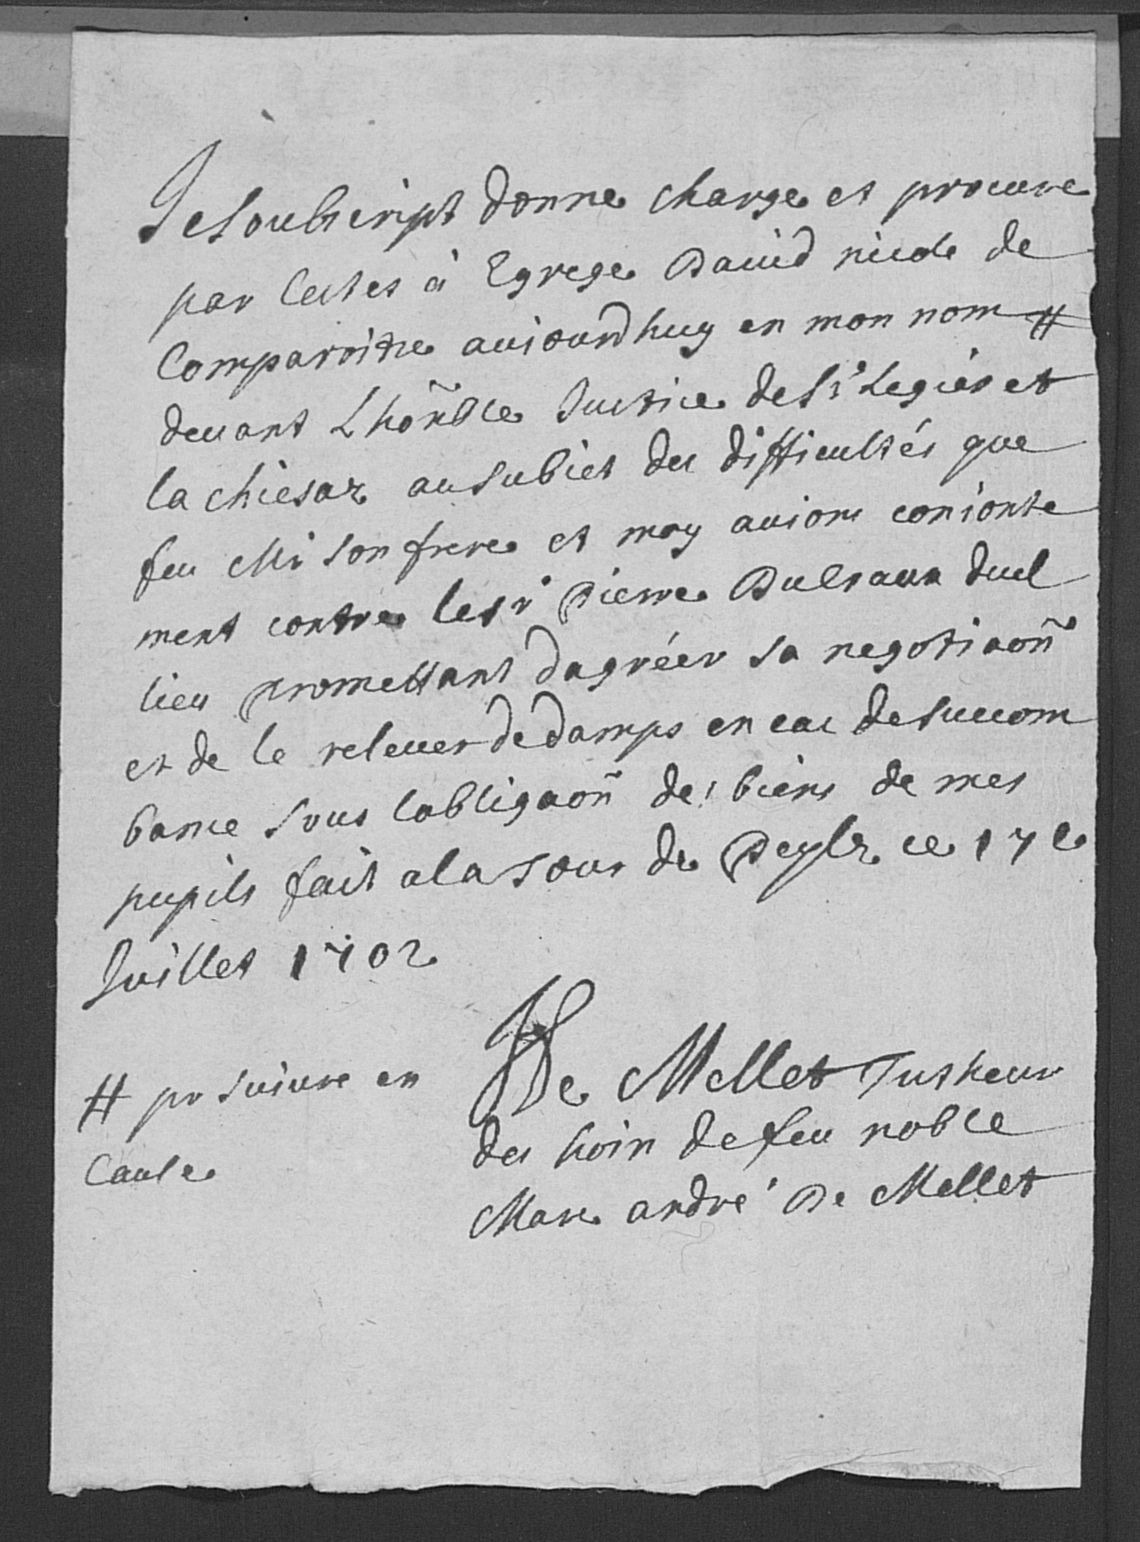 Je soubscript donne charge et procure
par cestes à Egrege David nicole de
Comparoitre aujourdhuy en mon nom #
devant Lhoñble Justice de St Legier et
la chiesaz au subiet des difficultés que
feu Mr son frere et moy avions conionte
ment contre le sr Pierre Dulraux dud
lieu promettant dagréer sa negotiaoñ
et de le relever de damps en cas de succom
bance sous lobligaoñ des biens de mes
pupils fait a la Tour de Peylz ce 17e
Juillet 1702
# pr suivre en
Cause
De Mellet Tutheur
des hoirs de feu noble
Marc andré De Mellet